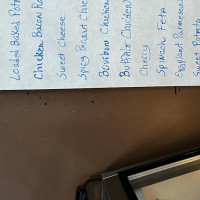 Loaded Baked Pota
Chicken Bacon Ra
Sweet Cheese
Spicy Peanut Chic
Bourbon Chicken
Buffalo Chicken
Cherry
Spinach Feta
Eggplant Parmesan
Sweet Potato